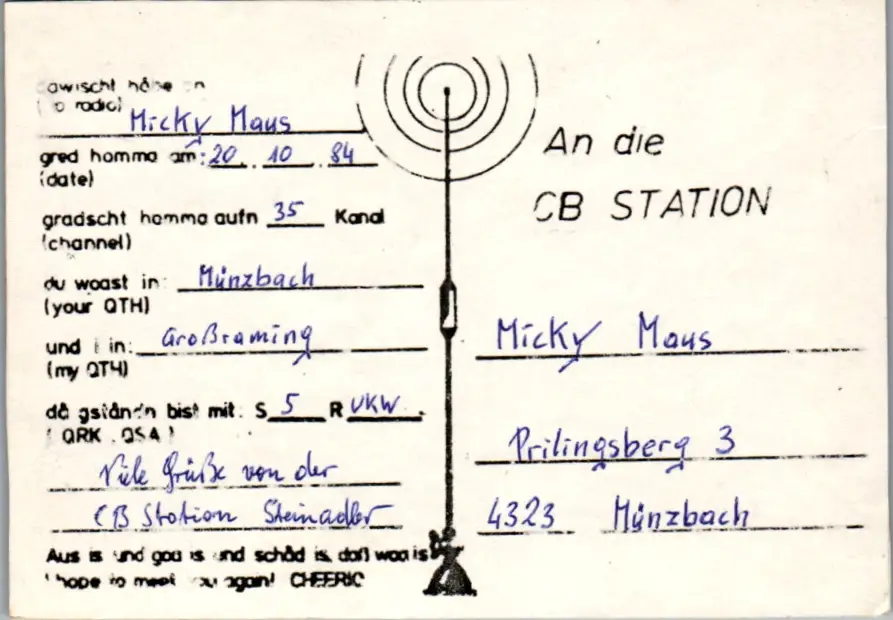 dawischt håbe
radio) Micky Maus
gred homma am: 20. 10. 84
(date)
gradscht homma aufn 35 Kanal
(channel)
du woast in: Münzbach
(your QTH)
und i in: Großraming
(my QTH)
då gståndn bist mit: S 5 R UKW.
(QRK, QSA)
Viele Grüße von der
CB Station Steinadler
Aus is und goa is und schåd is, daß woa is
I hope to meet you again! CHEERIO
An die
CB STATION
Micky Maus
Prilingsberg 3
4323 Münzbach